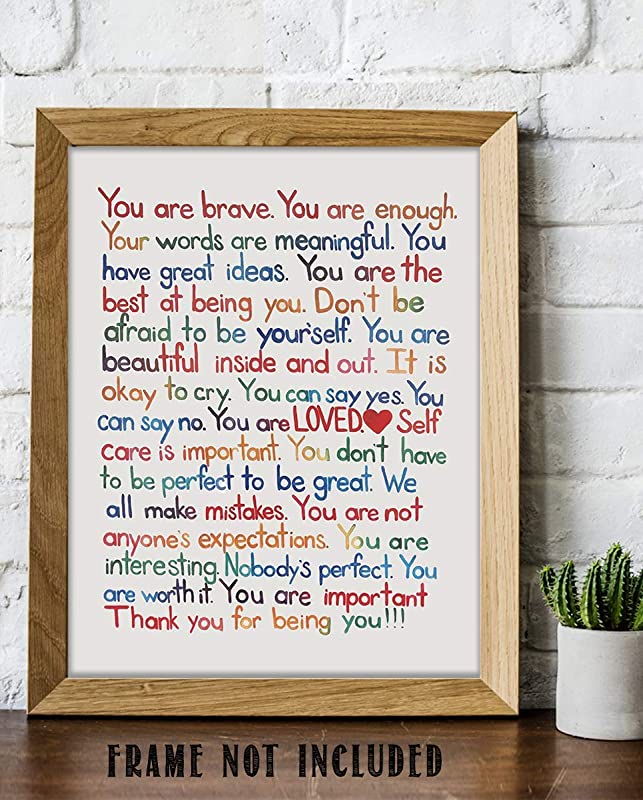 You are brave. You are enough.
Your words are meaningful. You
have great ideas. You are the
best at being you. Don't be
afraid to be yourself. You are
beautiful inside and out. It is
okay to cry. You can say yes. You
can say no. You are LOVED.❤ Self
care is important. You don't have
to be perfect to be great. We
all make mistakes. You are not
anyone's expectations. You are
interesting. Nobody's perfect. You
are worth it. You are important
Thank you for being you!!!
FRAME NOT INCLUDED